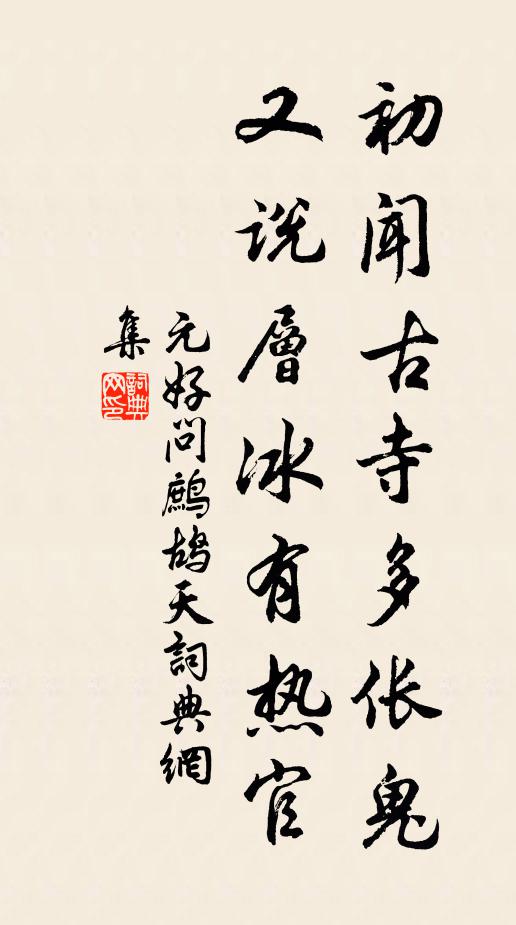 初闻古寺多伥鬼
又说層冰有热官
元好问鷓鸪天詞典網
集
詞典网印